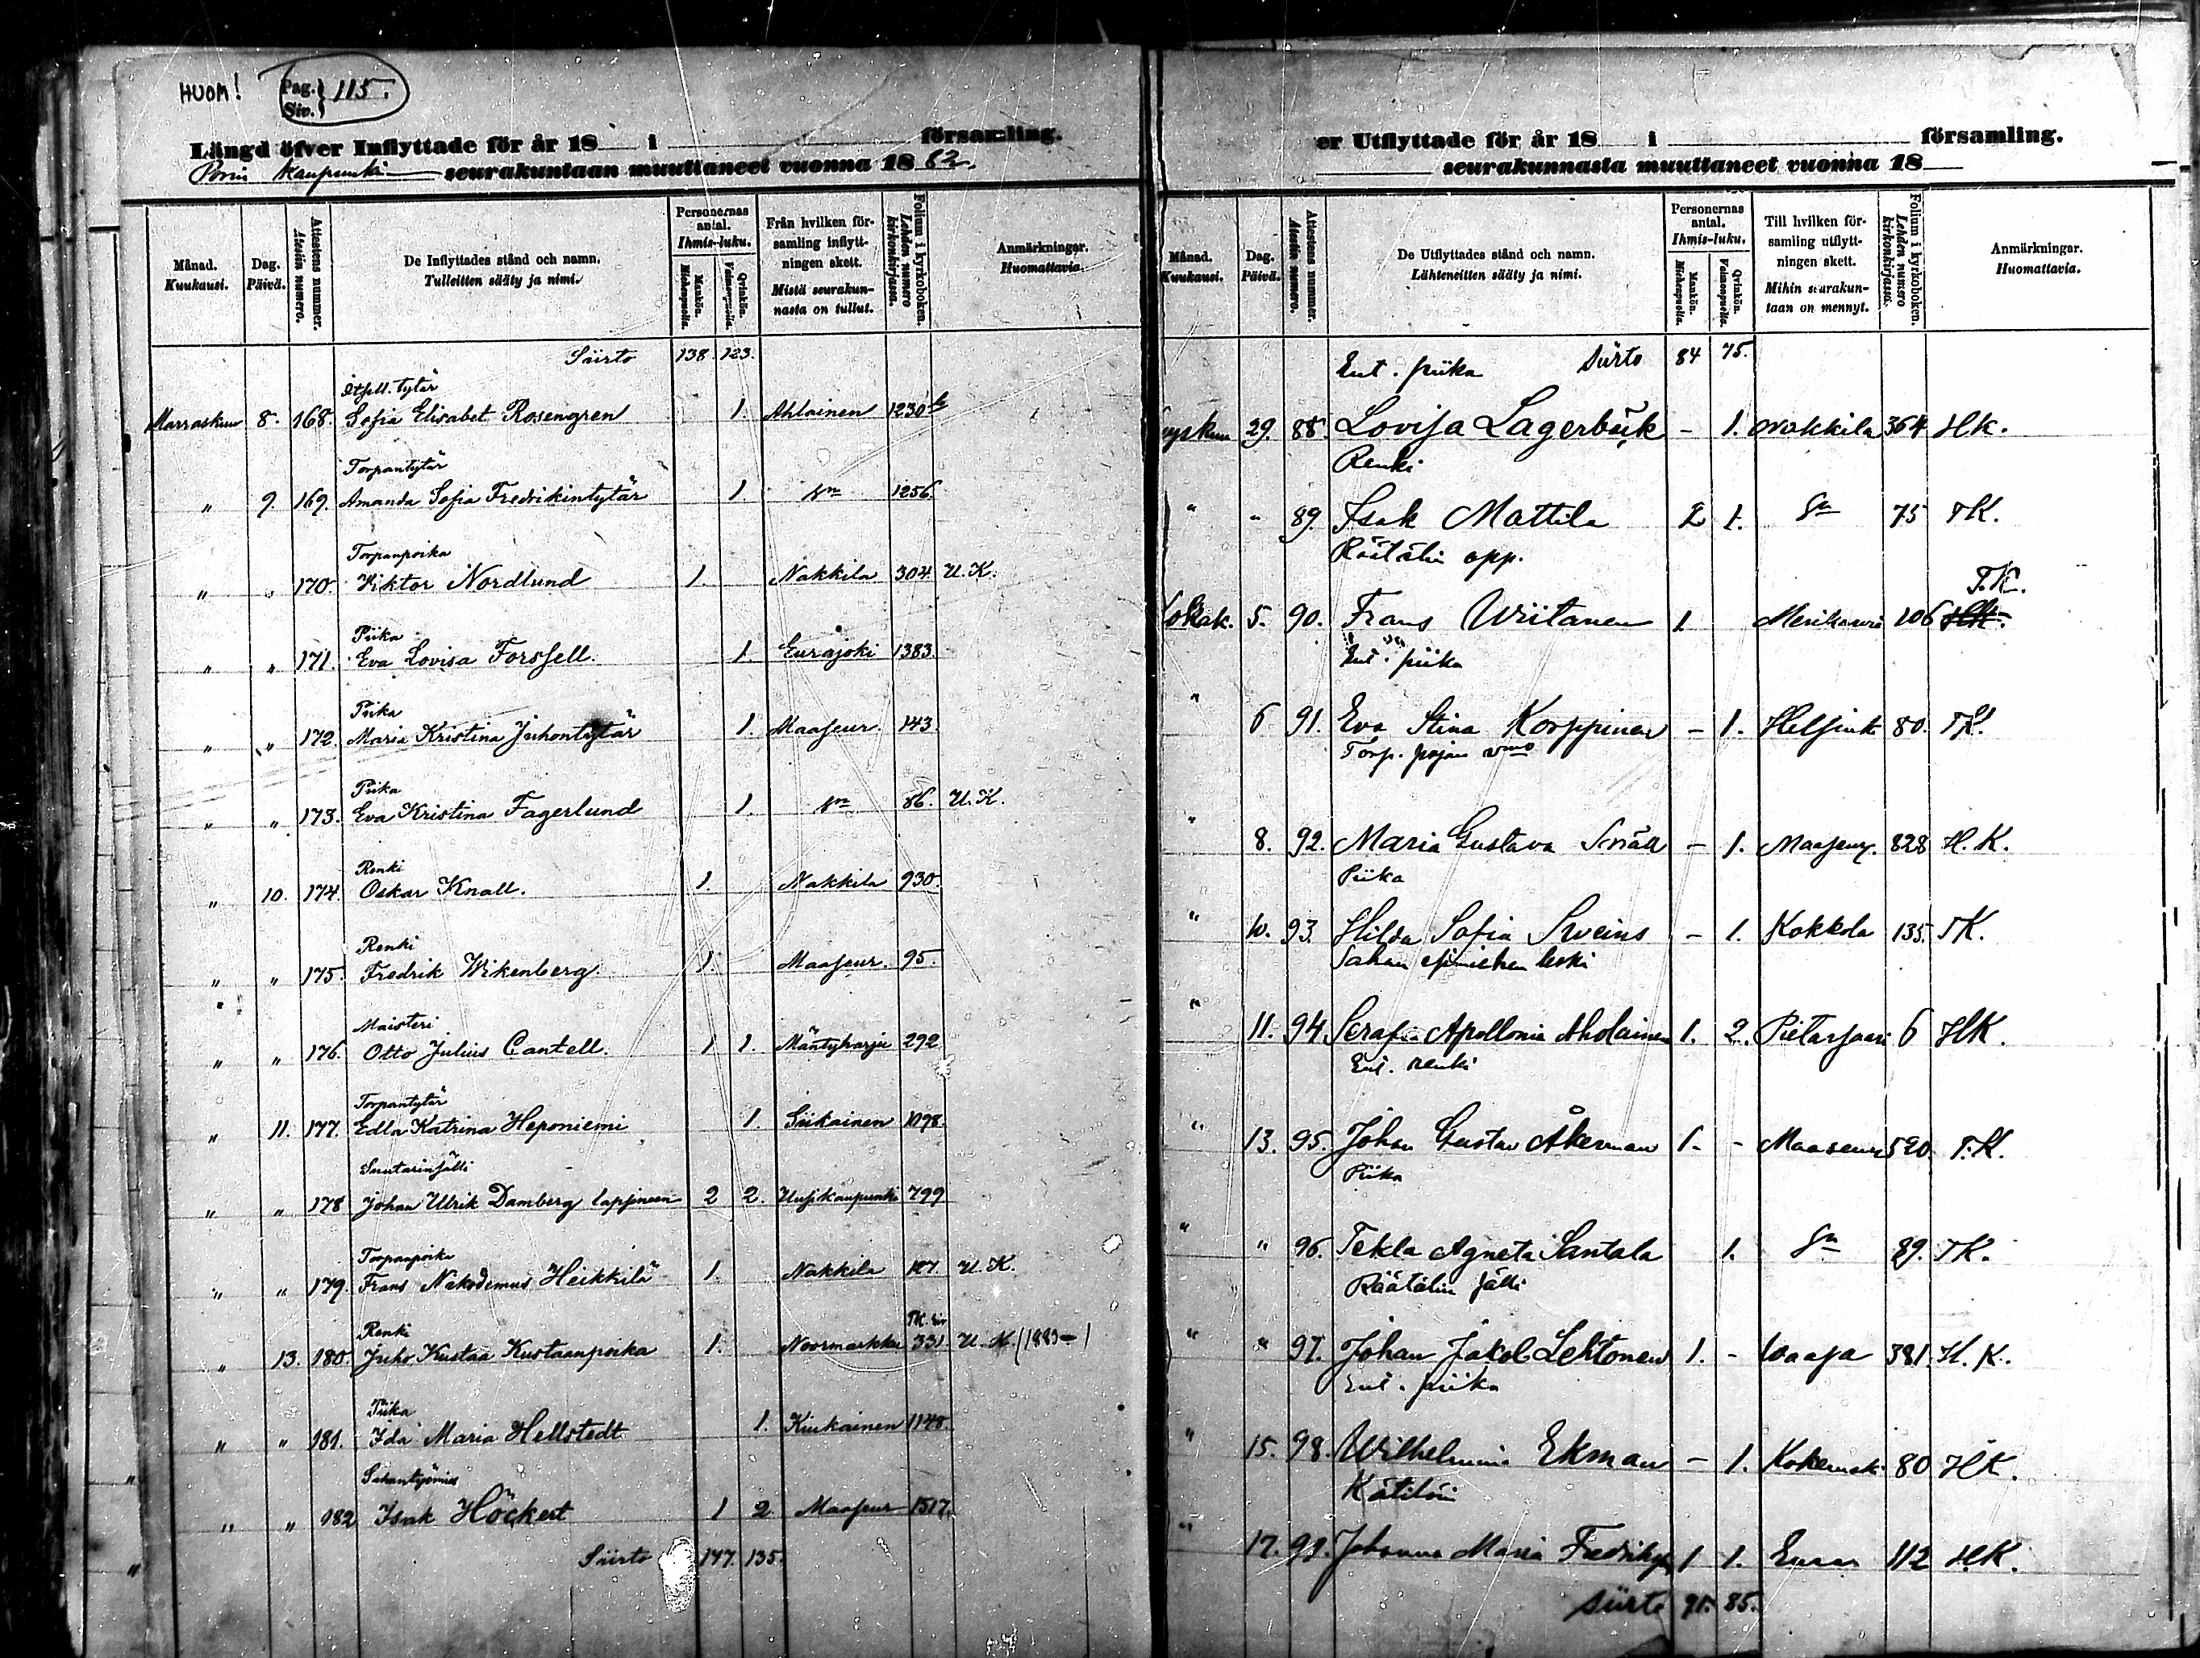 HUOM! Pag. Siv. 115.
Längd öfver Inflyttade för år 18 i församling.
Porin kaupunki seurakuntaan muuttaneet vuonna 1882.
Månad. Kuukausi.
Dag. Päivä.
Attestens nummer. Atestin numero.
De Inflyttades stånd och namn. Tulleitten sääty ja nimi.
Personernas antal. Ihmis-luku.
Mankön. Miehenpuolia.
Qvinkön. Vaimonpuolia.
Från hvilken församling inflyttningen skett. Mistä seurakunnasta on tullut.
Folium i kyrkoboken. Lehden numero kirkonkirjassa.
Anmärkningar. Huomattavia.
Siirto 138 123.
Itsell. tytär
Marraskuu 8. 168. Sofia Elisabet Rosengren 1. Ahlainen 1230
Torpantytär
" 9. 169. Amanda Sofia Fredrikintytär 1. 1256.
Torpanpoika
" " 170. Viktor Nordlund 1. Nakkila 304 U.K.
Piika
" " 171. Eva Lovisa Forssell. 1. Eurajoki 1383.
Piika
" " 172. Maria Kristina Juhontytär 1. Maaseur. 143.
Piika
" " 173. Eva Kristina Fagerlund 1. 86. U.K.
Renki
" 10. 174. Oskar Knall. 1. Nakkila 930.
Renki
" " 175. Fredrik Wikenberg 1. Maaseur. 95.
Maisteri
" " 176. Otto Julius Cantell. 1 1. Mäntyharju 292
Torpantytär
" 11. 177. Edla Katrina Heponiemi 1. Siikainen 1098.
Suutarinsälli
" " 178 Johan Ulrik Damberg lapsineen 2 2. Uusikaupunki 799
Torpanpoika
" " 179. Frans Nikodemus Heikkilä 1. Nakkila 107. U.K.
Renki
" 13. 180. Juho Kustaa Kustaanpoika 1. Noormarkku 331 U.K. (1883-)
Piika
" " 181. Ida Maria Hellstedt 1. Kiukainen 1148.
Sahantyömies
" " 182 Isak Höckert 1 2 Maaseur 1517.
Siirto 147. 135.
er Utflyttade för år 18 i församling.
seurakunnasta muuttaneet vuonna 18
Månad. Kuukausi.
Dag. Päivä.
Attestens nummer. Atestin numero.
De Utflyttades stånd och namn. Lähteneitten sääty ja nimi.
Personernas antal. Ihmis-luku.
Mankön. Miehenpuolia.
Qvinkön. Vaimonpuolia.
Till hvilken församling utflyttningen skett. Mihin seurakuntaan on mennyt.
Folium i kyrkoboken. Lehden numero kirkonkirjassa.
Anmärkningar. Huomattavia.
Ent. piika Siirto 84 75.
29. 88. Lovisa Lagerbäck - 1. Nakkila 364 H.K.
Renki
" " 89. Isak Mattila 2 1. 75 T.K.
Räätälin opp. T.K.
Lokak. 5. 90. Frans Wiitanen 1 Merikarvia 106
Ent. piika
" 6 91. Eva Stina Korppinen - 1. Helsinki 80. T.K.
Torp. pojan vmo
" 8. 92. Maria Gustava Snäll - 1. Maaseur. 828 H.K.
Piika
" 10. 93. Hilda Sofia Sveins - 1. Kokkola 135. T.K.
Sahan esimiehen leski
" 11. 94. Serafia Apollonia Aholainen 1. 2. Pietarsaari 6 H.K.
Ent. renki
" 13. 95. Johan Gustav Åkerman 1. - Maaseur 520. T.K.
Piika
" " 96. Tekla Agneta Santala 1. 89. T.K.
Räätälin sälli
" " 97. Johan Jakob Lehtonen 1. - Waasa 381. H.K.
Ent. piika
" 15. 98. Wilhelmina Ekman - 1. Kokemäki 80 H.K.
Kätilön
" 17. 99. Johanna Maria 1 1. Eura 112 H.K.
Siirto 91. 85.